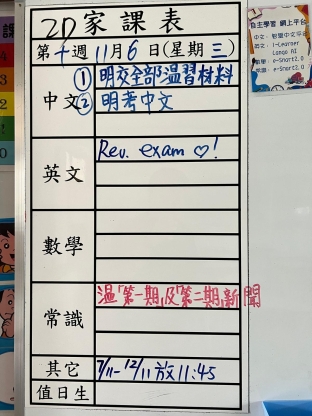 2D家課表
第十週11月6日(星期三)
中文
①明交全部溫習材料
②明考中文
英文
Rev. exam ♡!
數學
常識
溫「第一期」及「第二期」新聞
其它
7/11-12/11放11:45
值日生
自主學習 網上平台
中文:智慧中文平台
英文:i-Learner
Lango AI
數學:e-Smart2.0
常識:e-Smart3.0